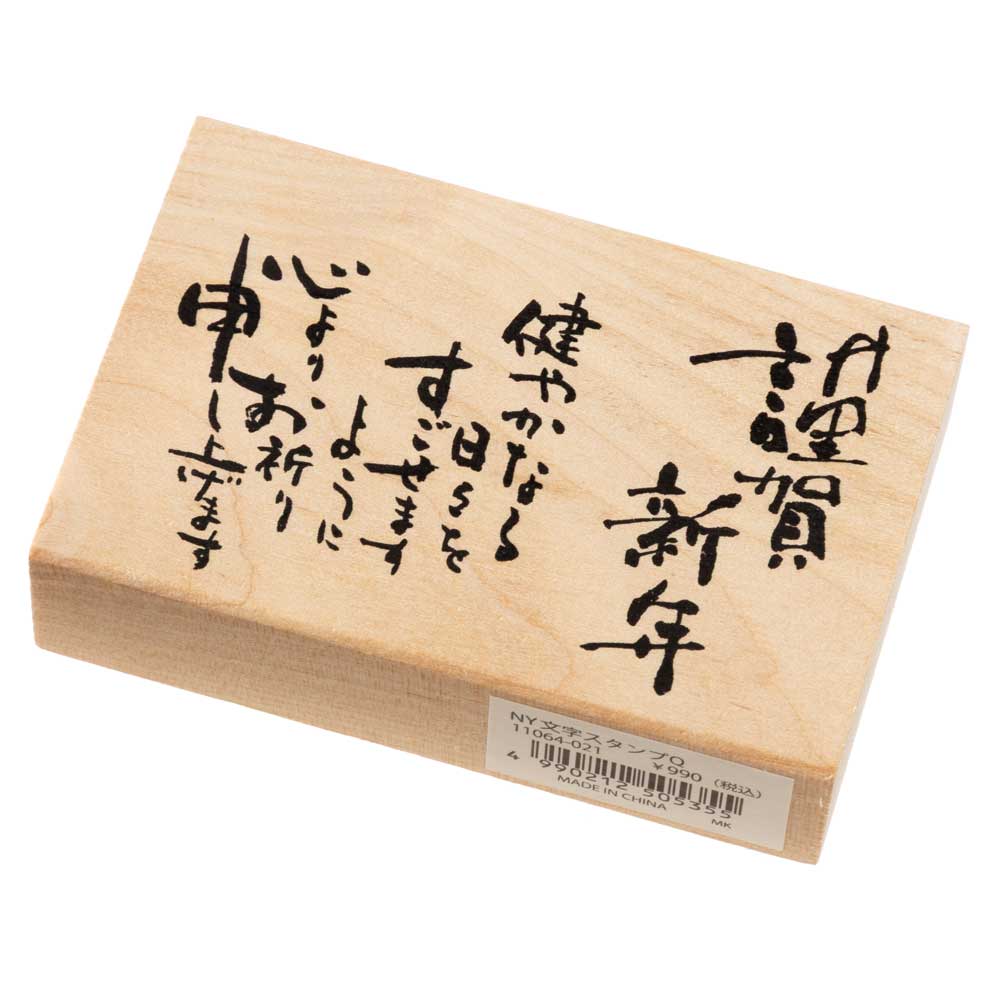 謹賀
新年
健やかなる
日々を
すごせます
ように
心より、
お祈り
申し上げます
NY 文字スタンプQ
11064-021
¥990（税込）
4 990212 505355
MADE IN CHINA
MK